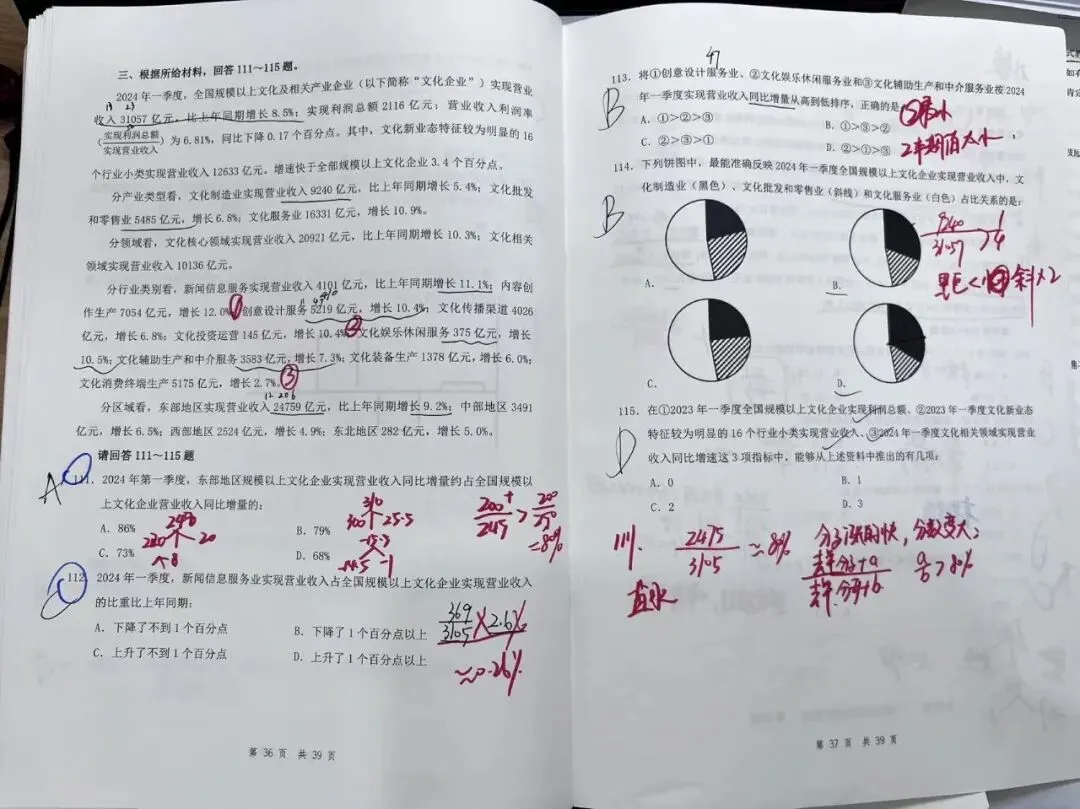 三、根据所给材料，回答 111～115 题。
2024 年一季度，全国规模以上文化及相关产业企业（以下简称“文化企业”）实现营业
收入 31057 亿元，比上年同期增长 8.5%；实现利润总额 2116 亿元；营业收入利润率
（实现利润总额/实现营业收入）为 6.81%，同比下降 0.17 个百分点。其中，文化新业态特征较为明显的 16
个行业小类实现营业收入 12633 亿元，增速快于全部规模以上文化企业 3.4 个百分点。
分产业类型看，文化制造业实现营业收入 9240 亿元，比上年同期增长 5.4%；文化批发
和零售业 5485 亿元，增长 6.8%；文化服务业 16331 亿元，增长 10.9%。
分领域看，文化核心领域实现营业收入 20921 亿元，比上年同期增长 10.3%；文化相关
领域实现营业收入 10136 亿元。
分行业类别看，新闻信息服务实现营业收入 4101 亿元，比上年同期增长 11.1%；内容创
作生产 7054 亿元，增长 12.0%；创意设计服务 5219 亿元，增长 10.4%；文化传播渠道 4026
亿元，增长 6.8%；文化投资运营 145 亿元，增长 10.4%；文化娱乐休闲服务 375 亿元，增长
10.5%；文化辅助生产和中介服务 3583 亿元，增长 7.3%；文化装备生产 1378 亿元，增长 6.0%；
文化消费终端生产 5175 亿元，增长 2.7%。
①
②
③
分区域看，东部地区实现营业收入 24759 亿元，比上年同期增长 9.2%；中部地区 3491
亿元，增长 6.5%；西部地区 2524 亿元，增长 4.9%；东北地区 282 亿元，增长 5.0%。
请回答 111～115 题
A
111. 2024 年第一季度，东部地区规模以上文化企业实现营业收入同比增量约占全国规模以
上文化企业营业收入同比增量的：
A. 86%
B. 79%
C. 73%
D. 68%
310
300
25.5
220
20
200+/245 > 200/250
=80%
112. 2024 年一季度，新闻信息服务业实现营业收入占全国规模以上文化企业实现营业收入
的比重比上年同期：
A. 下降了不到 1 个百分点
B. 下降了 1 个百分点以上
C. 上升了不到 1 个百分点
D. 上升了 1 个百分点以上
369/3105 × 2.6%
≈0.26%
第 36 页 共 39 页
47
B
113. 将①创意设计服务业、②文化娱乐休闲服务业和③文化辅助生产和中介服务业按 2024
年一季度实现营业收入同比增量从高到低排序，正确的是：
A. ①>②>③
B. ①>③>②
C. ②>③>①
D. ②>①>③
②最小
B
114. 下列饼图中，最能准确反映 2024 年一季度全国规模以上文化企业实现营业收入中，文
化制造业（黑色）、文化批发和零售业（斜线）和文化服务业（白色）占比关系的是：
A.
B.
C.
D.
1/4
D
115. 在①2023 年一季度全国规模以上文化企业实现利润总额、②2023 年一季度文化新业态
特征较为明显的 16 个行业小类实现营业收入、③2024 年一季度文化相关领域实现营业
收入同比增速这 3 项指标中，能够从上述资料中推出的有几项：
A. 0
B. 1
C. 2
D. 3
111. 2475/3105 ≈80%
分子涨的快，分数变大；
a/b > 80%
第 37 页 共 39 页